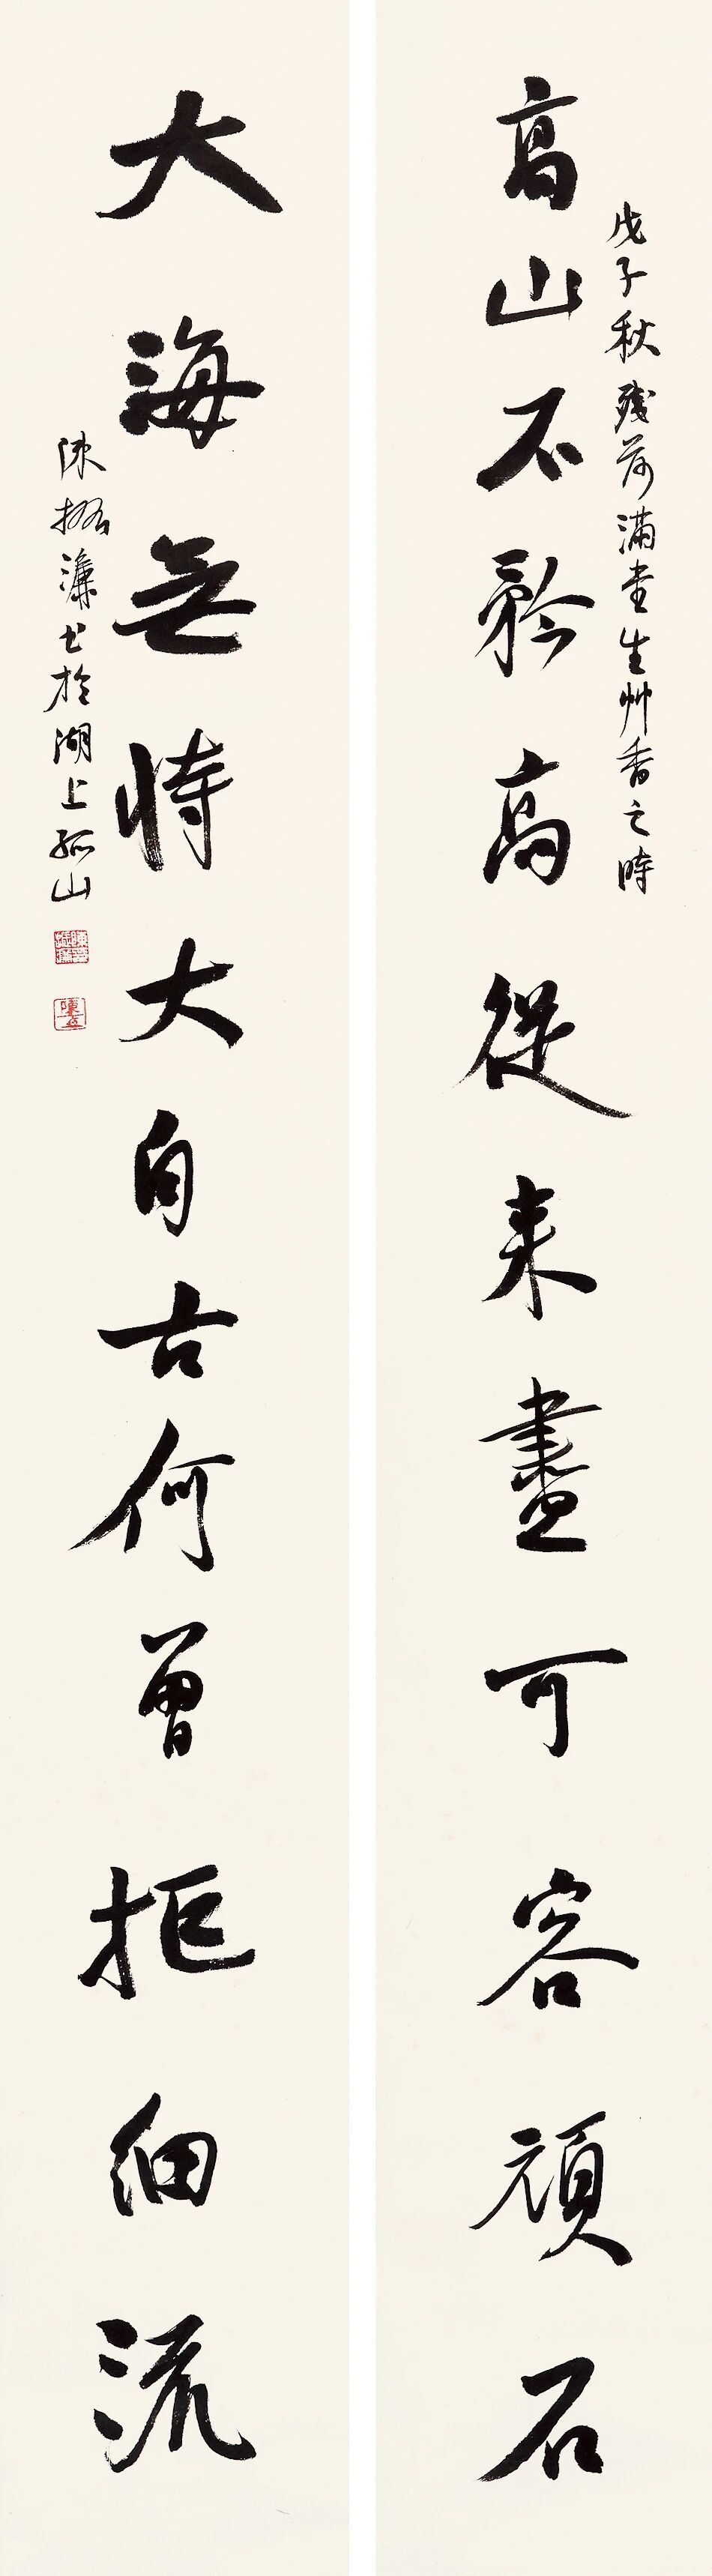 戊子秋殘荷滿畫生艸香之時
高山不矜高從來盡可容頑石
大海無恃大自古何曾拒細流
陳振濂書於湖上孤山